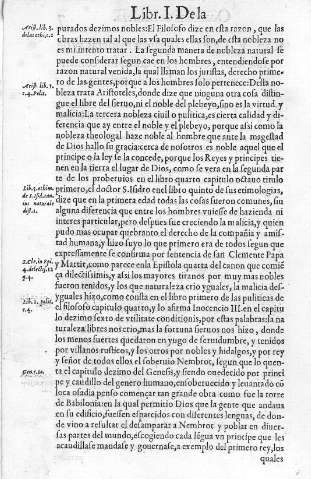 Libr. I. De la
purados dezimos nobles: El Filosofo dize en esta razon, que las
obras hazen tal al que las vsa quales ellas son, de esta nobleza no
es mi intento tratar. La segunda manera de nobleza natural se
puede considerar segun cae en los hombres, entendiendose por
razon natural venida, la qual llaman los juristas, derecho prime-
ro de las gentes, por que a los hombres solo pertenece: Desta no-
bleza trata Aristoteles, donde dize que ninguna otra cosa distin-
gue el libre del sieruo, ni el noble del plebeyo, sino es la virtud, y
malicia: La tercera nobleza ciuil o politica, es cierta calidad y di-
ferencia que ay entre el noble y el plebeyo, porque assi como la
nobleza theologal haze noble al hombre que ante la magestad
de Dios hallo su gracia: cerca de nosotros es noble aquel que el
principe o la ley se la concede, porque los Reyes y principes tie-
nen en la tierra el lugar de Dios, como se vera en la segunda par
te de los prouerbios en el libro quarto capitulo octauo titulo
primero, el doctor S. Isidro en el libro quinto de sus etimologias,
dize que en la primera edad todas las cosas fueron comunes, sin
alguna diferencia que entre los hombres vuiesse de hazienda ni
interes particular, pero despues fue creciendo la malicia, y quien
pudo mas ocupar quebranto el derecho de la compañia y amis-
tad humana, y hizo suyo lo que primero era de todos segun que
expressamente se confirma por sentencia de san Clemente Papa
y Martir, como parece en la Epistola quarta del canon que comiē
ça dilectissimis, y assi los mayores tiranos por muy mas nobles
fueron tenidos, y los que naturaleza crio yguales, la malicia des-
yguales hizo, como consta en el libro primero de las politicas de
el filosofo capitulo quarto, y lo afirma Inocencio III. en el capitu
lo dezimo sexto de vtilitate conditionis, por estas palabras: la na
turaleza libres nos crio, mas la fortuna sieruos nos hizo, donde
los menos fuertes quedaron en yugo de seruidumbre, y tenidos
por villanos rusticos, y los otros por nobles y hidalgos, y por rey
y señor de todos ellos el soberuio Nembrot, segun que lo quen-
ta el capitulo dezimo del Genesis, y siendo obedecido por princi
pe y caudillo del genero humano, ensoberuecido y leuantado cō
loca osadia penso començar tan grande obra como fue la torre
de Babilonia: en la qual permitio Dios que la gente que andaua
en su edificio, fuessen esparcidos con diferentes lenguas, de don-
de vino a resultar el desamparar a Nembrot y poblar en diuer-
sas partes del mundo, escogiendo cada légua vn principe que les
acaudillasse mandasse y gouernasse, a exemplo del primero rey, los
quales
Arist. lib. 3.
Arist. lib. 1.
c. 4. Polit.
Lib. 5. ethim.
Lib. 1. polit.
c. 4.
Gen. c. 10.